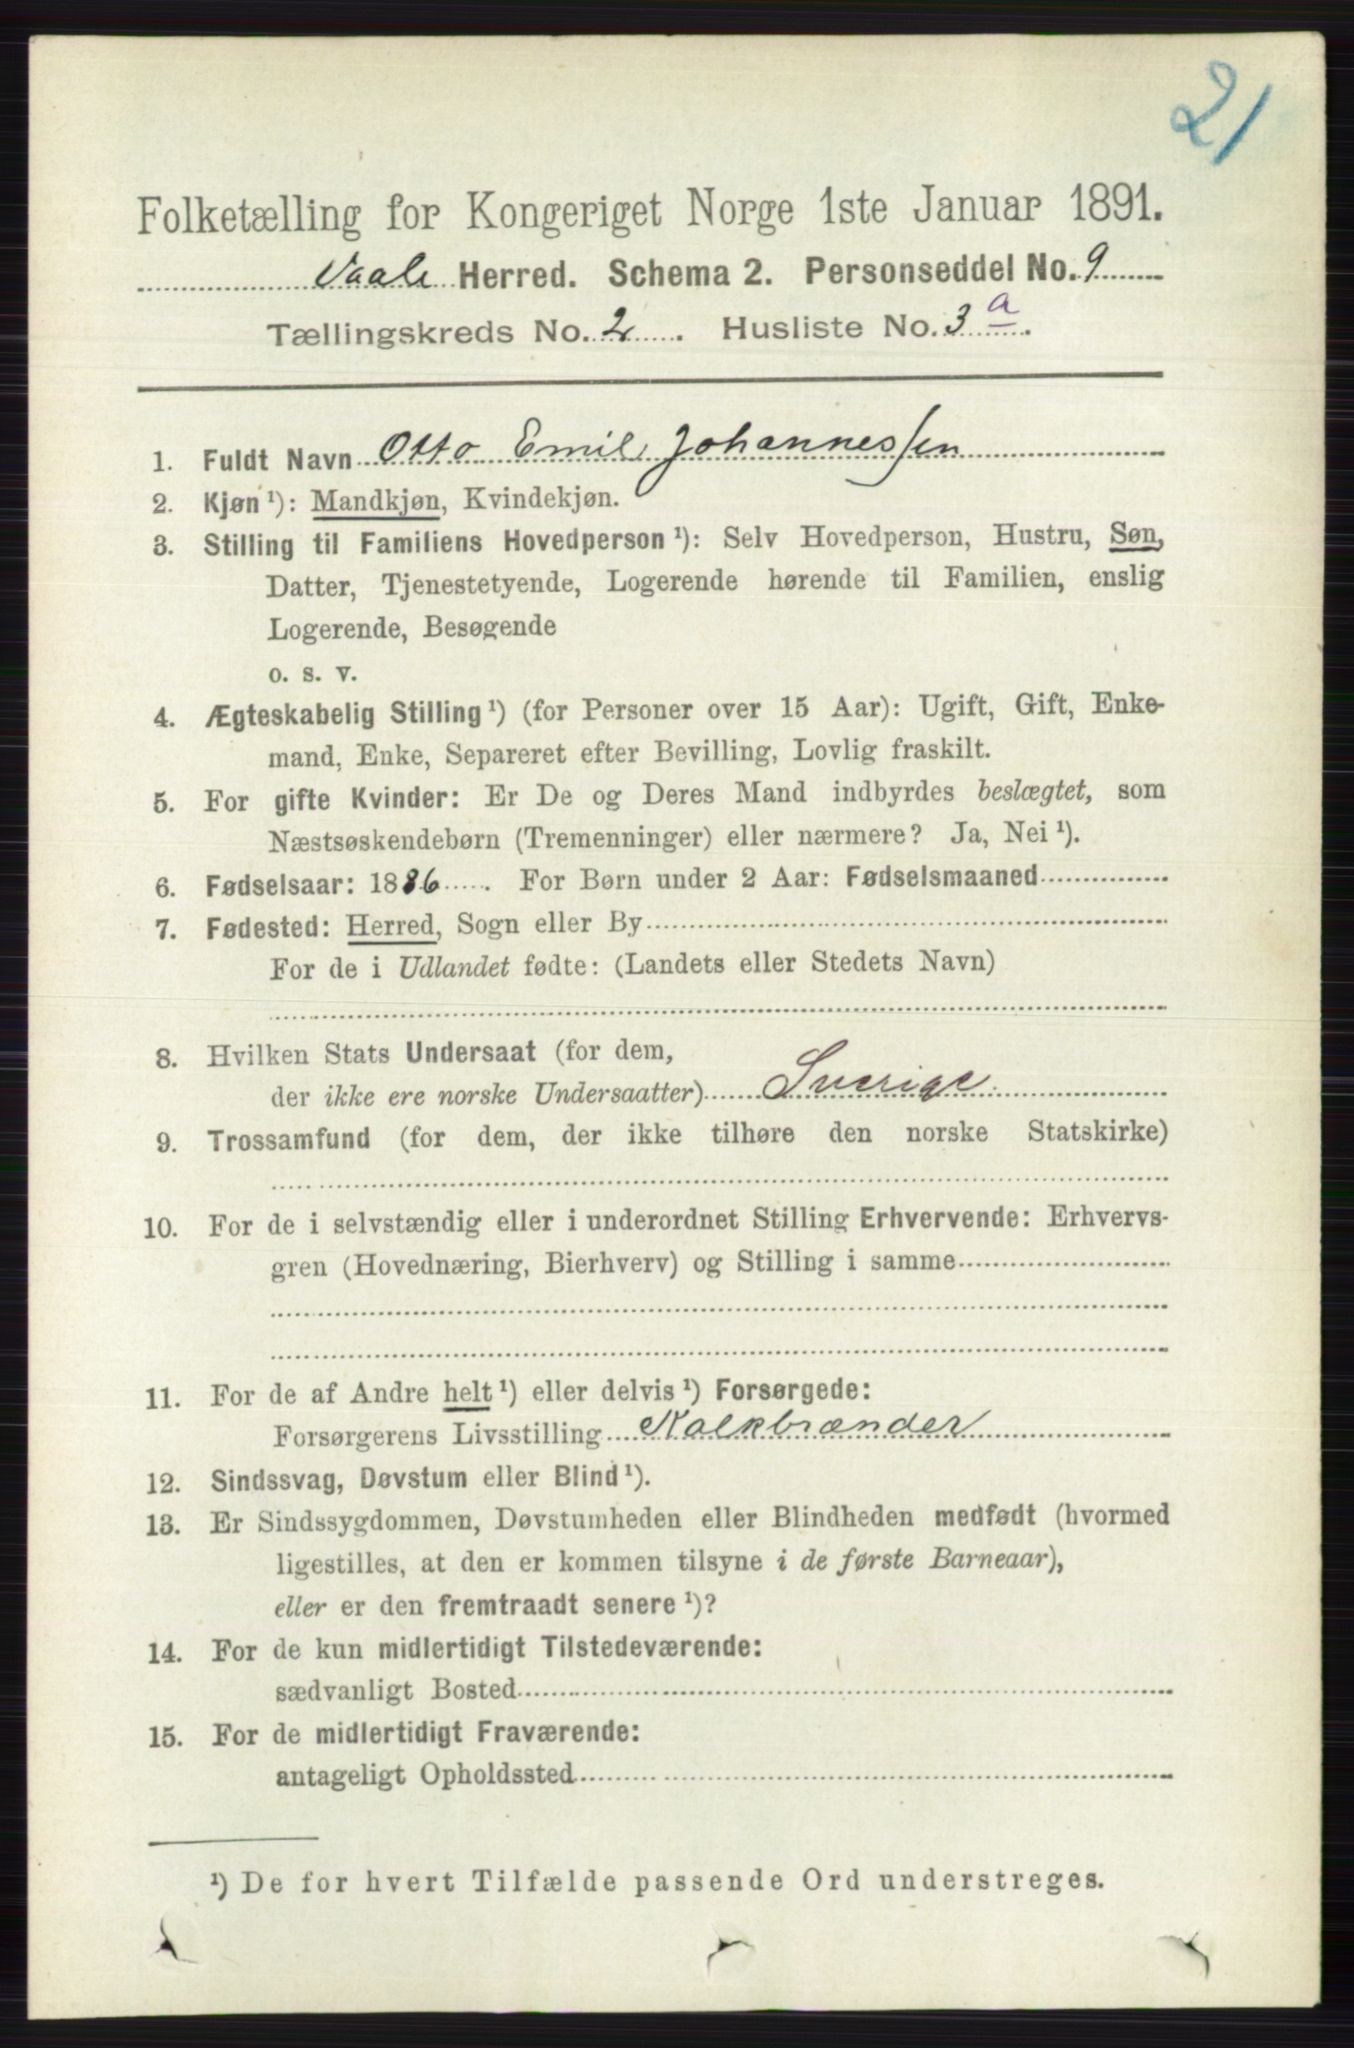 21
Folketælling for Kongeriget Norge 1ste Januar 1891.
Vaale Herred. Schema 2. Personseddel No. 9
Tællingskreds No. 2. Husliste No. 3 a.
1. Fuldt Navn Otto Emil Johannessen
2. Kjøn ¹): Mandkjøn, Kvindekjøn.
3. Stilling til Familiens Hovedperson ¹): Selv Hovedperson, Hustru, Søn,
Datter, Tjenestetyende, Logerende hørende til Familien, enslig
Logerende, Besøgende
o. s. v.
4. Ægteskabelig Stilling ¹) (for Personer over 15 Aar): Ugift, Gift, Enke-
mand, Enke, Separeret efter Bevilling, Lovlig fraskilt.
5. For gifte Kvinder: Er De og Deres Mand indbyrdes beslægtet, som
Næstsøskendebørn (Tremenninger) eller nærmere? Ja, Nei ¹).
6. Fødselsaar: 1886. For Børn under 2 Aar: Fødselsmaaned
7. Fødested: Herred, Sogn eller By
For de i Udlandet fødte: (Landets eller Stedets Navn)
8. Hvilken Stats Undersaat (for dem,
der ikke ere norske Undersaatter) Sverige.
9. Trossamfund (for dem, der ikke tilhøre den norske Statskirke)
10. For de i selvstændig eller i underordnet Stilling Erhvervende: Erhvervs-
gren (Hovednæring, Bierhverv) og Stilling i samme
11. For de af Andre helt ¹) eller delvis ¹) Forsørgede:
Forsørgerens Livsstilling Kalkbrænder
12. Sindssvag, Døvstum eller Blind ¹).
13. Er Sindssygdommen, Døvstumheden eller Blindheden medfødt (hvormed
ligestilles, at den er kommen tilsyne i de første Barneaar),
eller er den fremtraadt senere ¹)?
14. For de kun midlertidigt Tilstedeværende:
sædvanligt Bosted
15. For de midlertidigt Fraværende:
antageligt Opholdssted
¹) De for hvert Tilfælde passende Ord understreges.